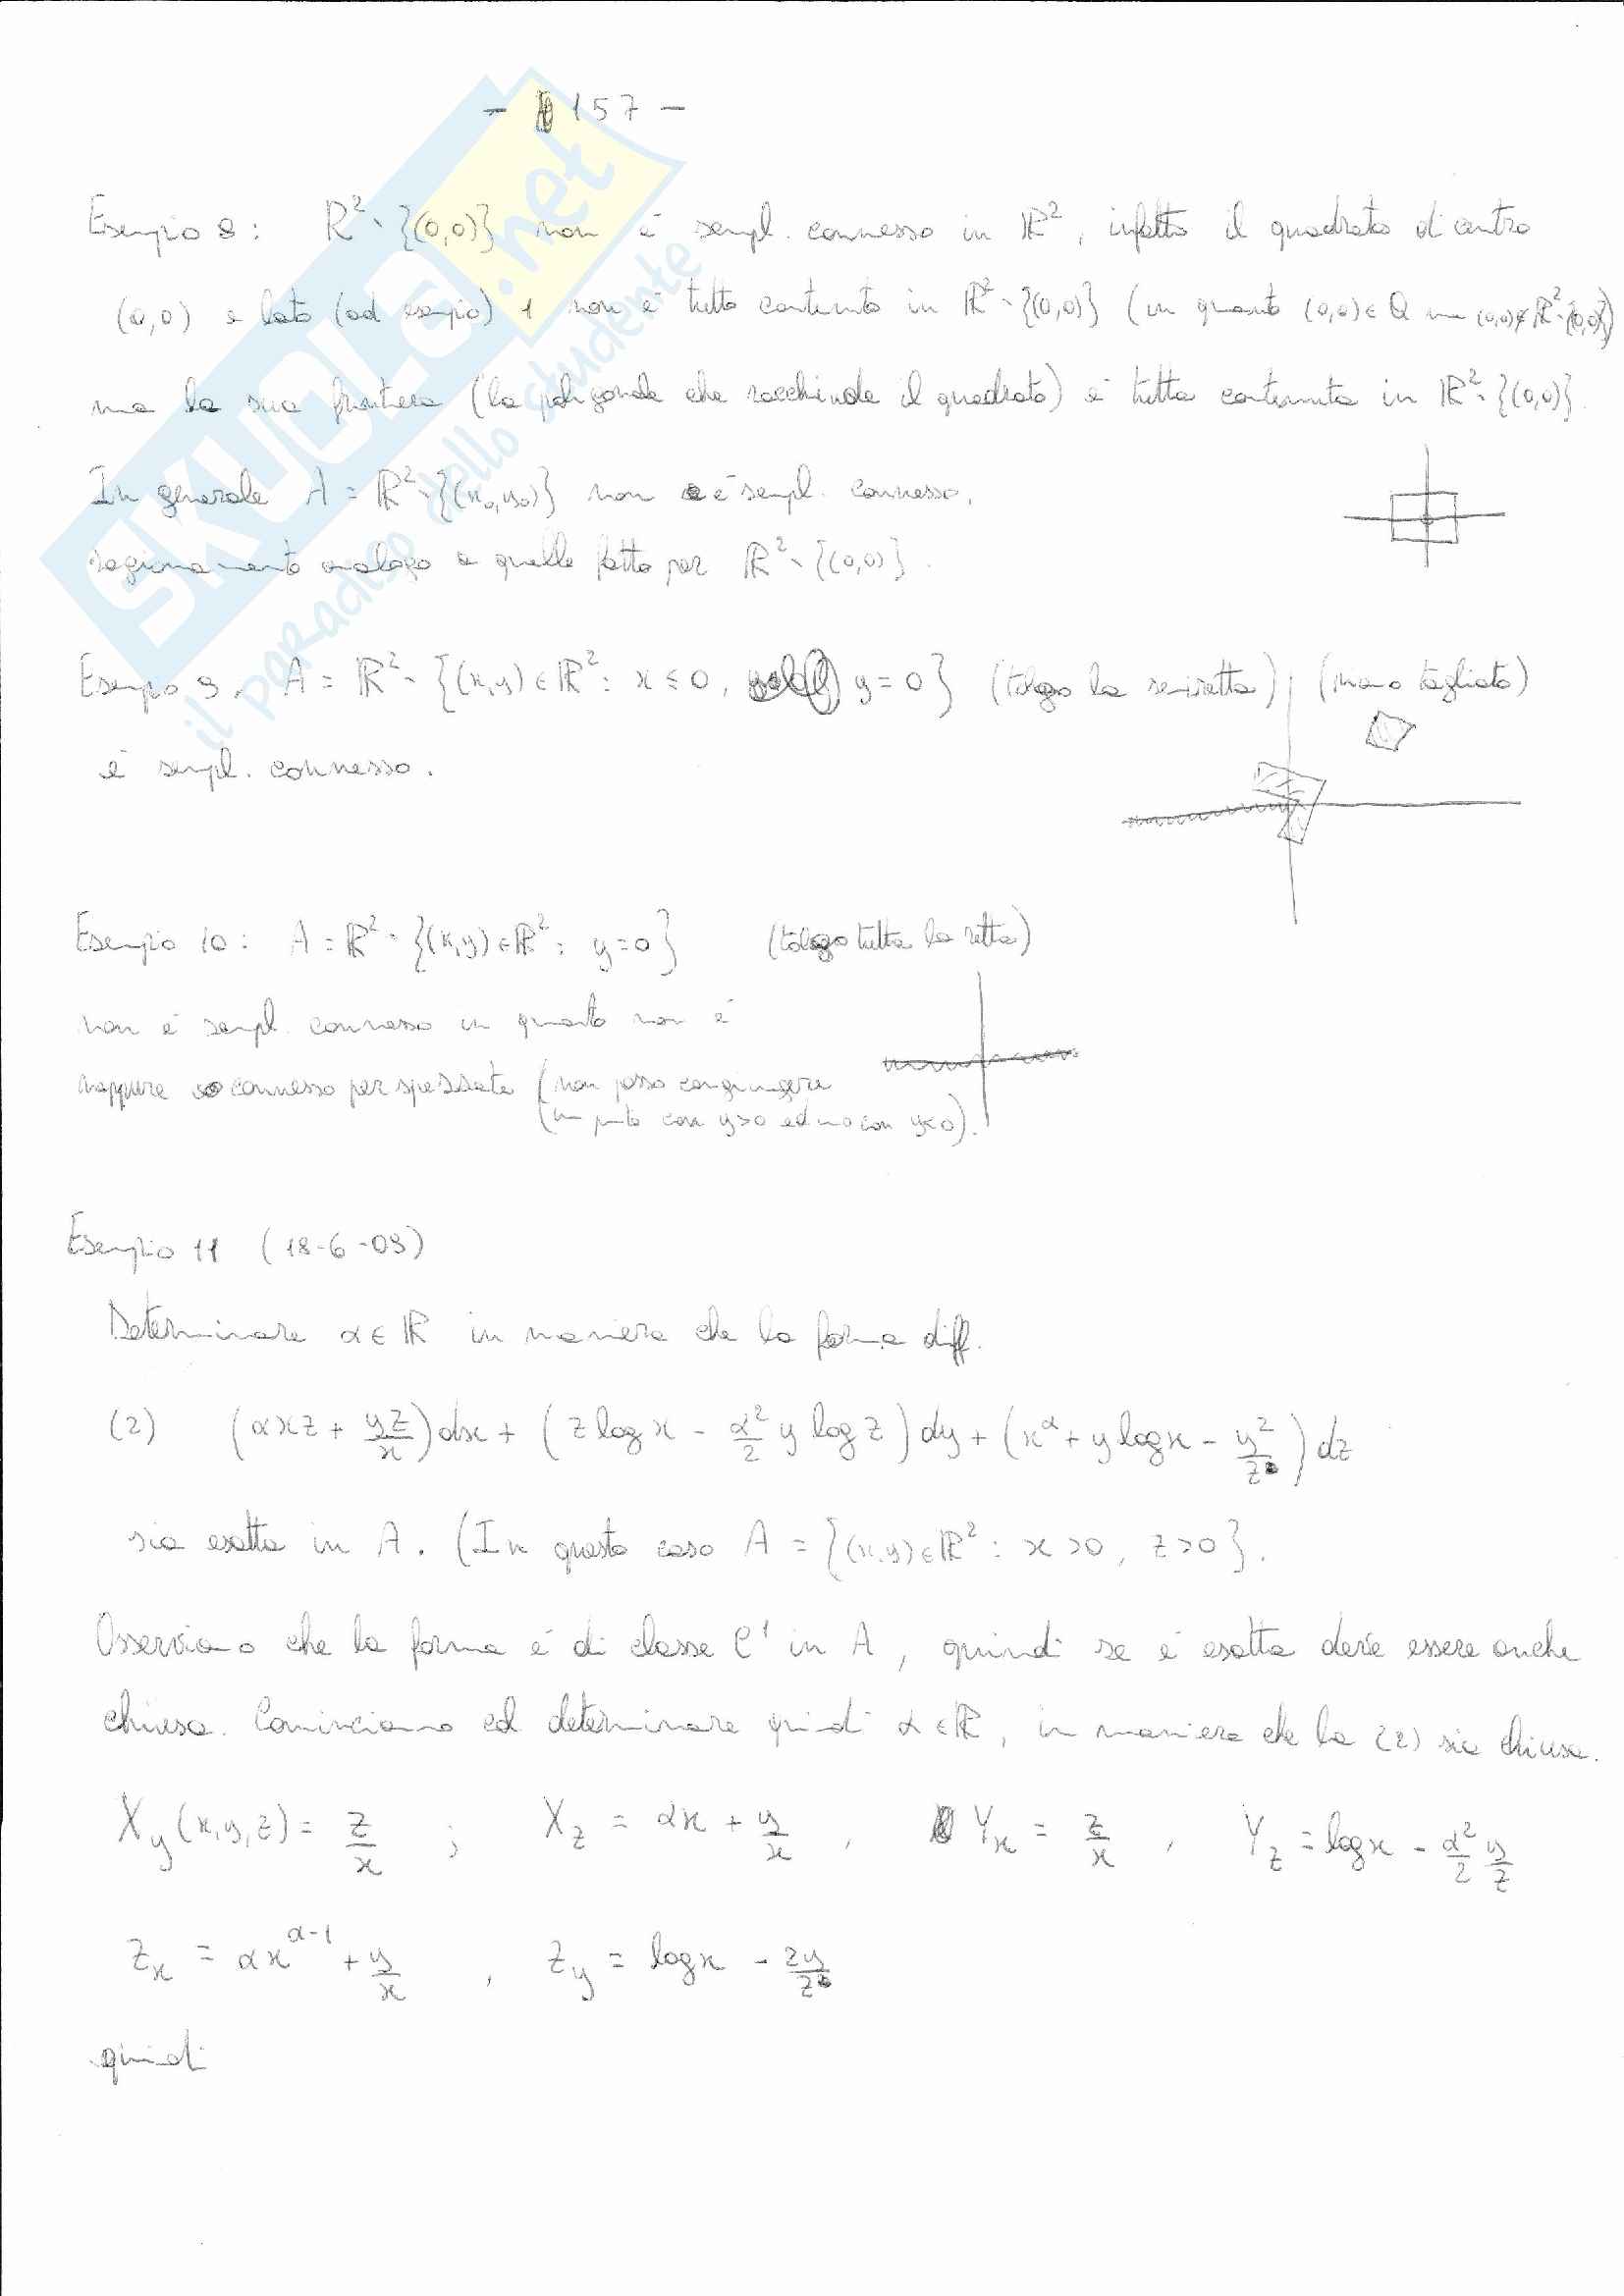 - 157 -
SKUOLA.net
il paradiso dello studente
Esempio 8: R² \ {(0,0)} non è sempl. connesso in R², infatti il quadrato di centro
(0,0) e lato (ad esempio) 1 non è tutto contenuto in R² \ {(0,0)} (in quanto (0,0) ∈ Q ma (0,0) ∉ R² \ {(0,0)})
ma la sua frontiera (la poligonale che racchiude il quadrato) è tutta contenuta in R² \ {(0,0)}.
In generale A = R² \ {(x₀,y₀)} non è sempl. connesso,
ragionamento analogo a quello fatto per R² \ {(0,0)}.
Esempio 9. A = R² \ {(x,y) ∈ R² : x ≤ 0, y = 0} (tolgo la semiretta) (piano tagliato)
è sempl. connesso.
Esempio 10: A = R² \ {(x,y) ∈ R² : y = 0} (tolgo tutta la retta)
non è sempl. connesso in quanto non è
neppure connesso per spezzate (non posso congiungere
un punto con y>0 ed uno con y<0).
Esempio 11 (18-6-03)
Determinare α ∈ R in maniera che la forma diff.
(2) (αxz + yz/x) dx + (z log x - α²/2 y log z) dy + (x^α + y log x - y²/z) dz
sia esatta in A. (In questo caso A = {(x,y) ∈ R² : x > 0, z > 0}.
Osserviamo che la forma è di classe C¹ in A, quindi se è esatta deve essere anche
chiusa. Cominciamo ad determinare quindi α ∈ R, in maniera che la (2) sia chiusa.
X_y(x,y,z) = z/x ; X_z = αx + y/x , Y_x = z/x , Y_z = log x - α²/2 y/z
Z_x = αx^(α-1) + y/x , Z_y = log x - 2y/z
quindi